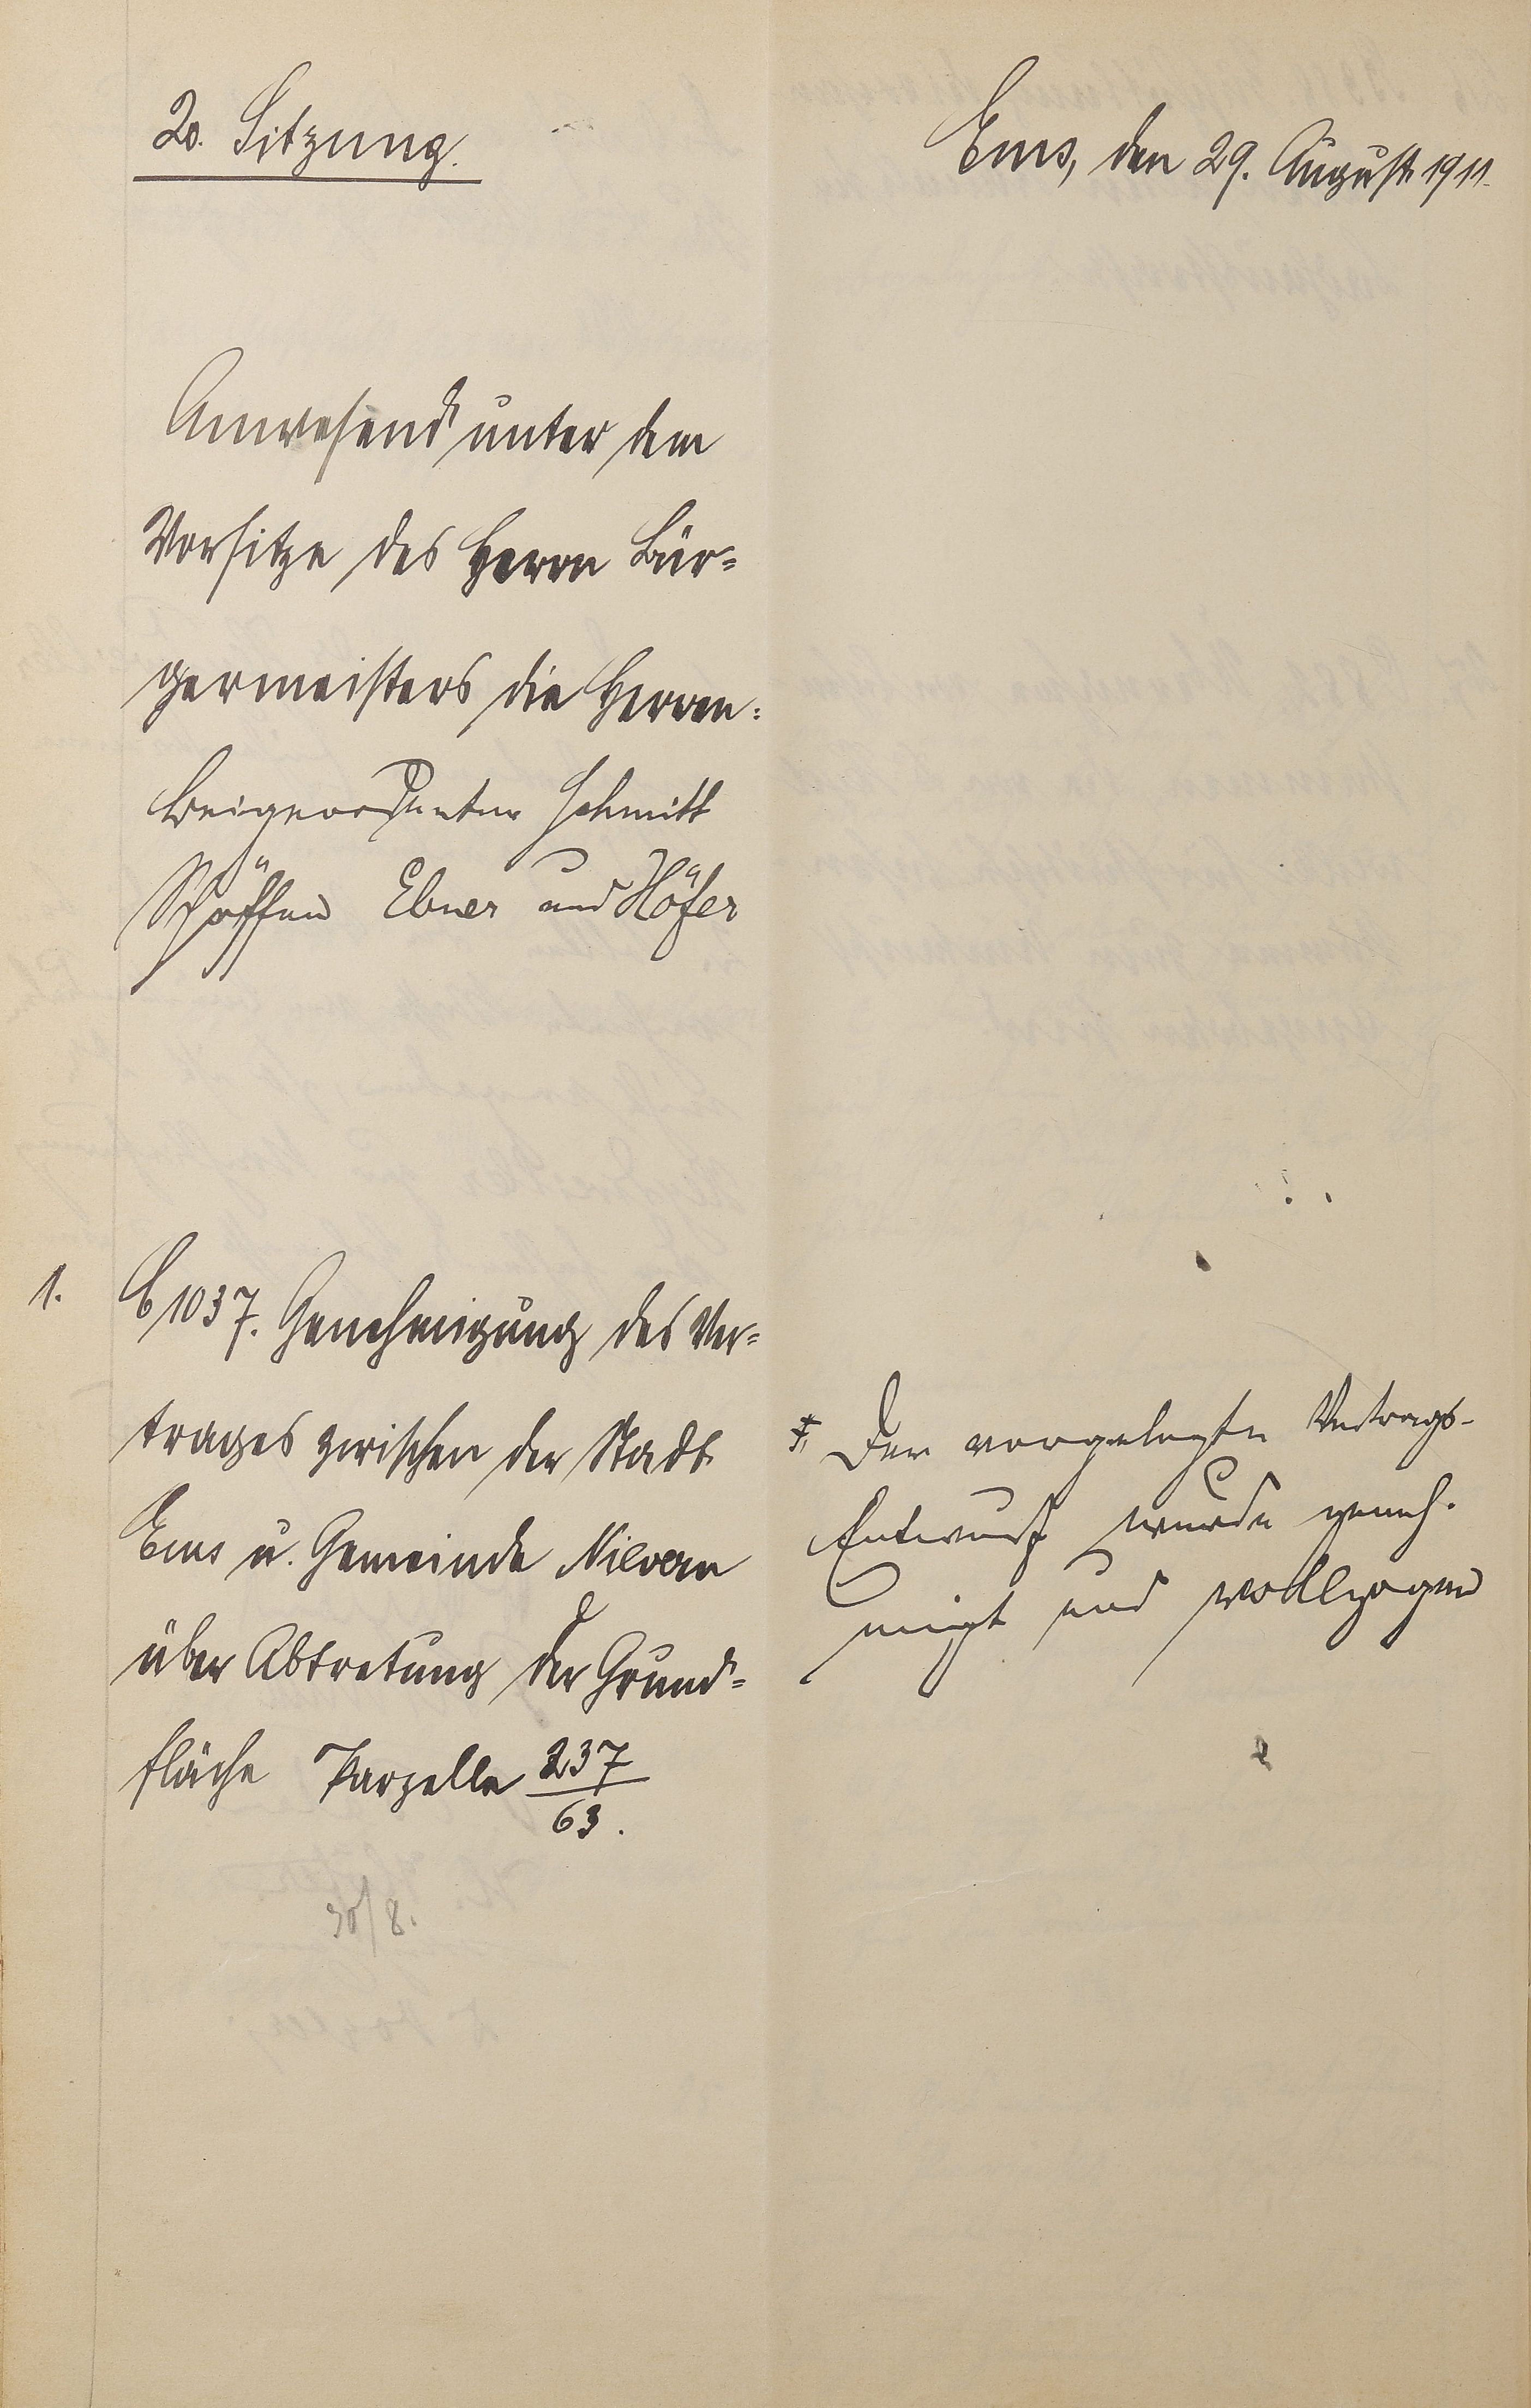 20. Sitzung.
Ems, den 29. August 1911.
Anwesend unter dem
Vorsitze des Herrn Bür-
germeisters die Herren:
Beigeordneter Schmitt
Schöffen Ebner und Höfer
1. C 1037. Genehmigung des Ver-
trages zwischen der Stadt
Ems u. Gemeinde Nievern
über Abtretung der Grund-
fläche Parzelle 237/63.
30/8.
Der vorgelegte Vertrags-
Entwurf wurde geneh-
migt und vollzogen